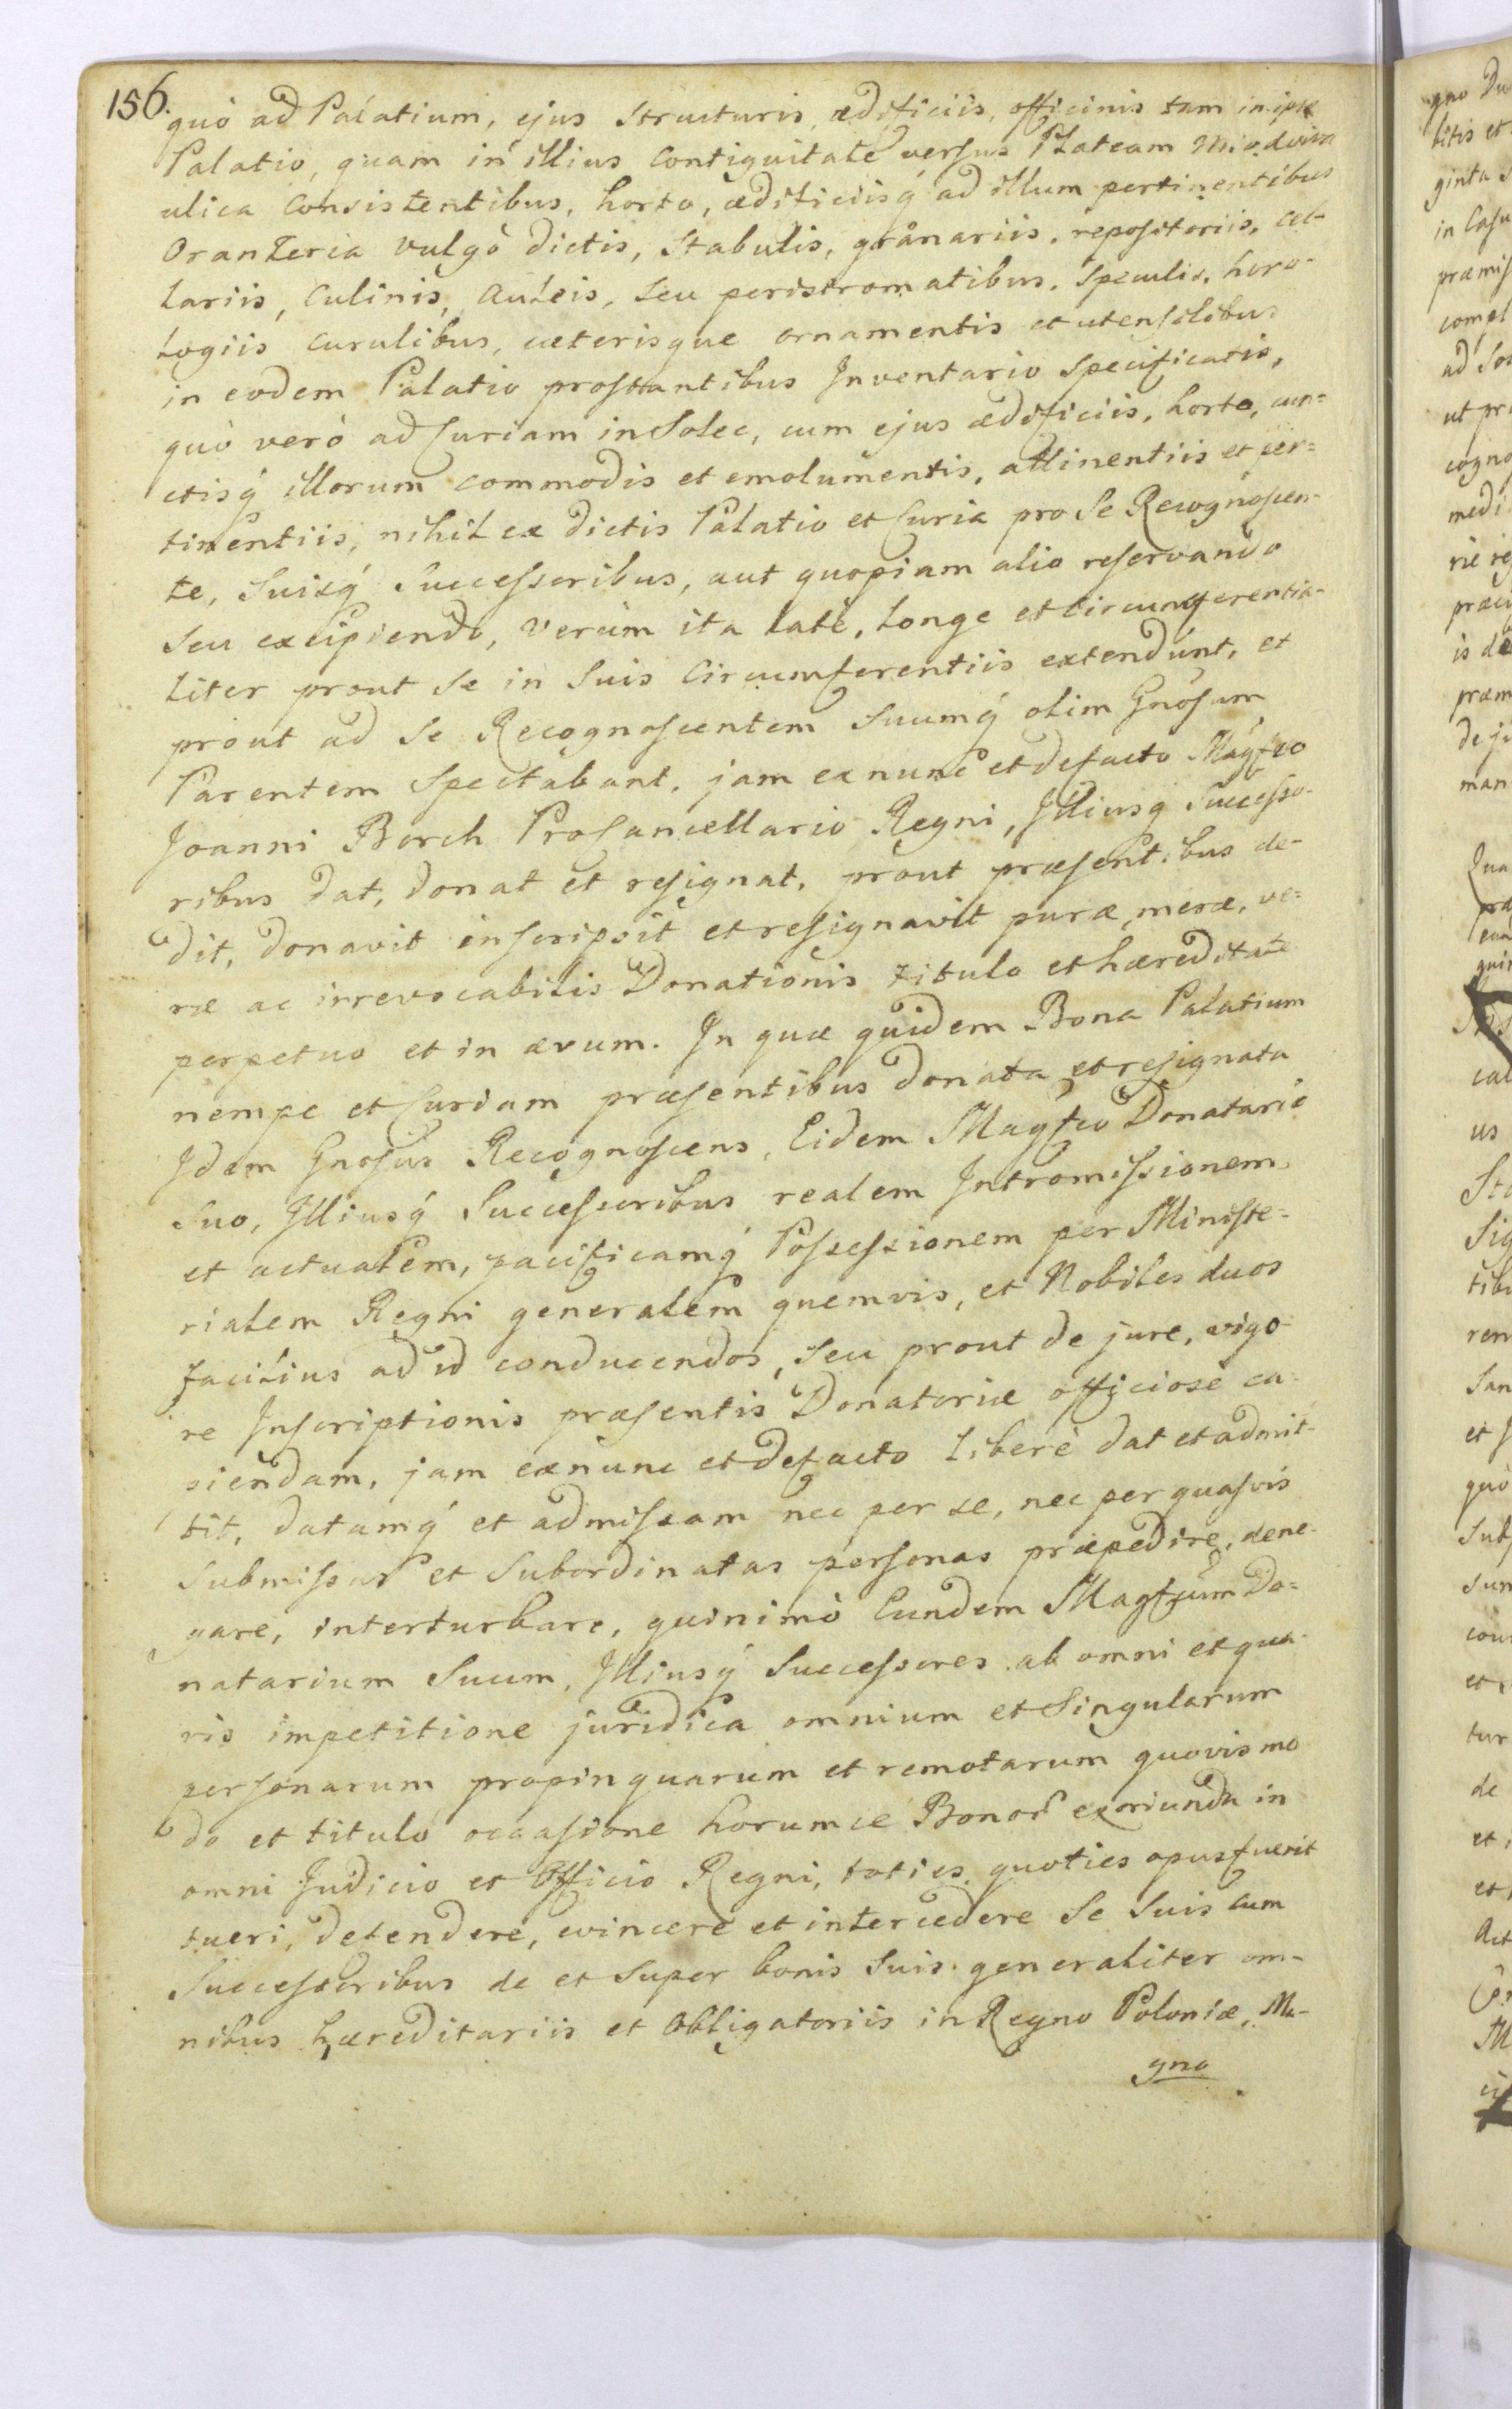 156.
quò ad Palatium, ejus Structuris, ædificiis, officinis tam in ipso
Palatio, quam in illius Contiguitate versus Plateam Miodowa
ulica Consistentibus, horto, ædificiisq́ ad illum pertinentibus
Oranżeria vulgò dictis, Stabulis, granariis, repositoriis, cel-
lariis, Culinis, Auleis, Seu peristromatibus, Speculis, horo-
logiis Curulibus, cæterisque ornamentis et utensilibus
in eodem Palatio prostantibus Inventario Specificatis,
quò verò ad Curiam in Solec, cum ejus ædificiis, horto, cun=
ctisq́ illorum commodis et emolumentis, attinentiis et per=
tinentiis, nihil ex dictis Palatio et Curia pro Se Recognoscen-
te, Suisq́ Successoribus, aut quopiam alio reservando
Seu excipiendo, verùm ita latè, longe et circumferentia-
liter prout Se in Suis Circumferentiis extendunt, et
prout ad Se Recognoscentem Suumq́ olim Gnosum
Parentem Spectabant, jam ex nunc et de facto Magfco
Joanni Borch ProCancellario Regni, Illiusq́ Successo-
ribus dat, donat et resignat, prout præsentibus de-
dit, donavit inscripsit et resignavit puræ, meræ, ve=
ræ ac irrevocabilis Donationis titulo et hæreditate
perpetuo et in ævum. In quæ quidem Bona Palatium
nempe et Curiam præsentibus donata et resignata
Idem Gnosus Recognoscens, Eidem Magfco Donatario
Suo, Illiusq́ Successoribus realem Intromissionem,
et actualem, pacificamq́ Possessionem per Ministe-
rialem Regni generalem quemvis, et Nobiles duos
facilius ad id conducendos, Seu prout de jure, vigo-
re Inscriptionis præsentis Donatoriæ officiosè ca-
piendam, jam ex nunc et de facto liberè dat et admit-
tit, datamq́ et admissam nec per se, nec per quasvis
Submissas et Subordinatas personas præpedire, dene-
gare, interturbare, quinimò Eundem Magfcum Do=
natarium Suum, Illiusq́ Successores ab omni et qua-
vis impetitione juridica omnium et Singularum
personarum propinquarum et remotarum quovis mo
do et titulo occasione horumce Bonor exoriunda in
omni Judicio et Officio Regni, toties, quoties opus fuerit
tueri, defendere, evincere et intercedere Se Suis cum
Successoribus de et Super bonis Suis generaliter om-
nibus hæreditariis et Obligatoriis in Regno Poloniæ, Ma-
gno